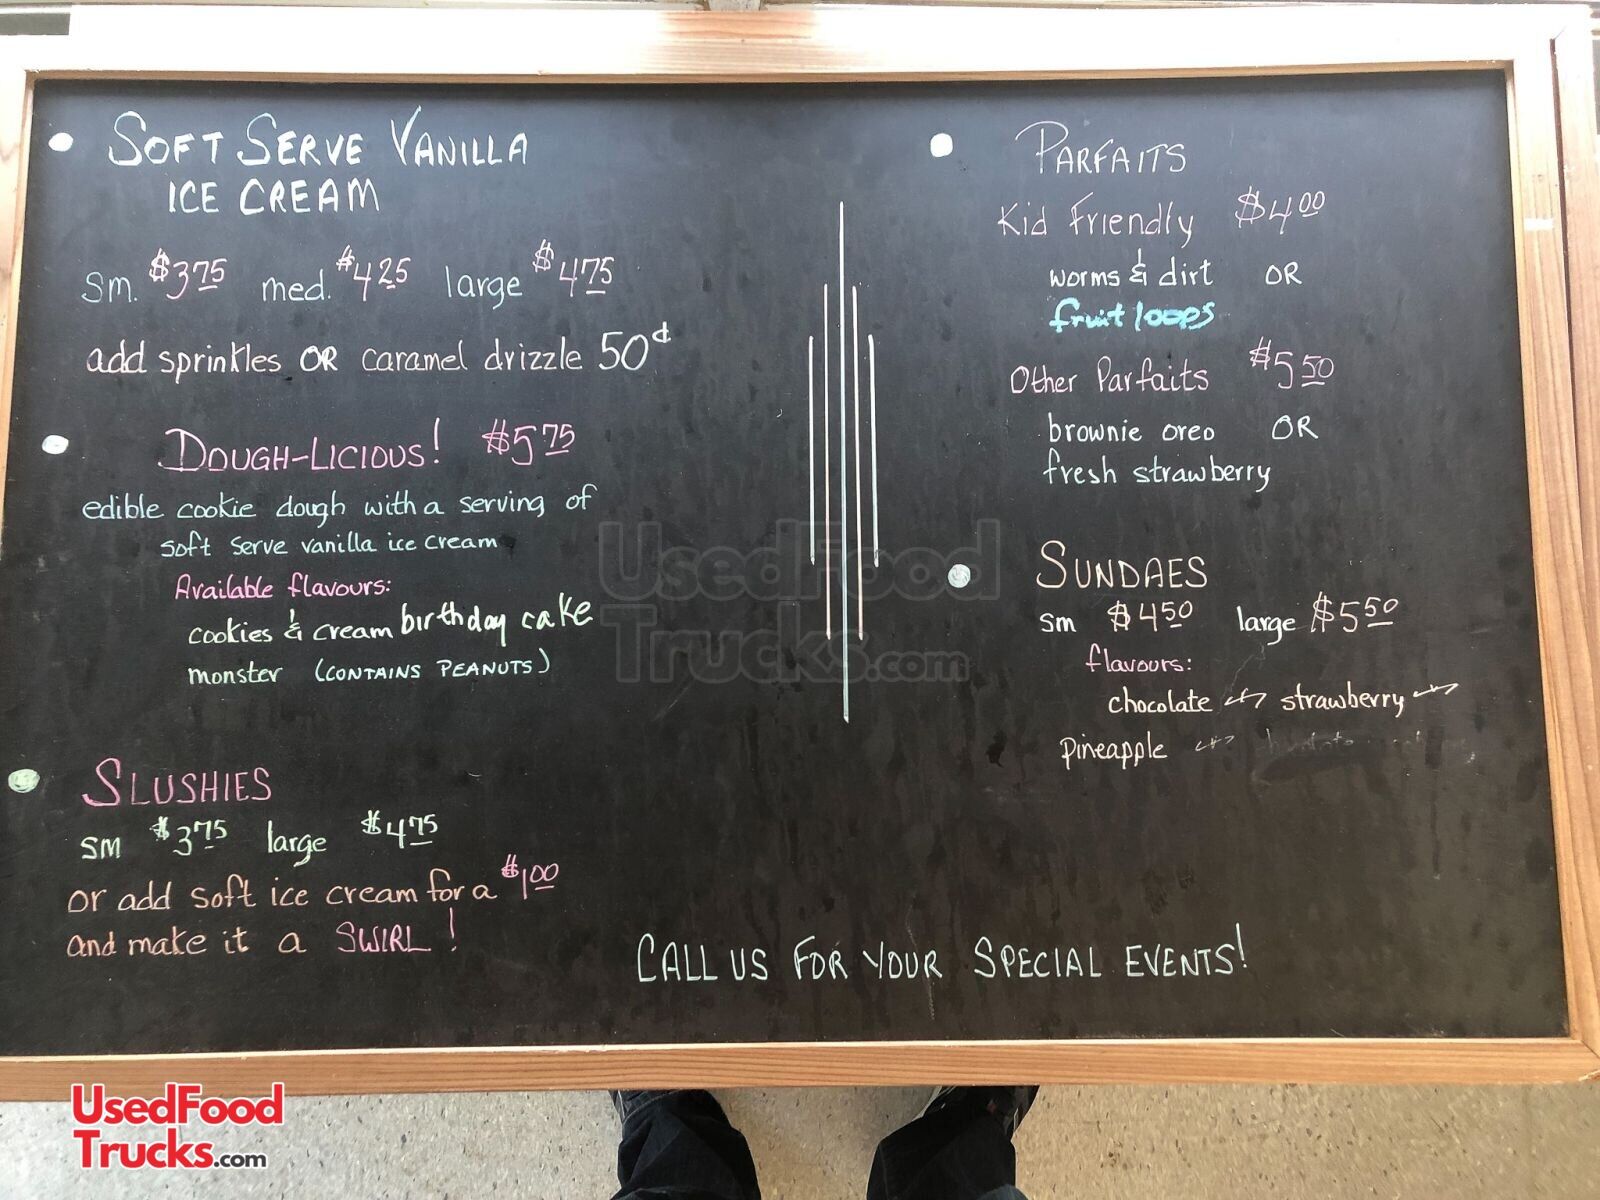 SOFT SERVE VANILLA
ICE CREAM
sm. $3.75 med. $4.25 large $4.75
add sprinkles OR caramel drizzle 50¢
DOUGH-LICIOUS! $5.75
edible cookie dough with a serving of
soft serve vanilla ice cream
Available flavours:
cookies & cream birthday cake
monster (CONTAINS PEANUTS)
SLUSHIES
sm $3.75 large $4.75
or add soft ice cream for a $1.00
and make it a SWIRL!
PARFAITS
Kid Friendly $4.00
worms & dirt OR
fruit loops
Other Parfaits $5.50
brownie oreo OR
fresh strawberry
SUNDAES
sm $4.50 large $5.50
flavours:
chocolate strawberry
pineapple
CALL US FOR YOUR SPECIAL EVENTS!
UsedFood
Trucks.com
UsedFood
Trucks.com